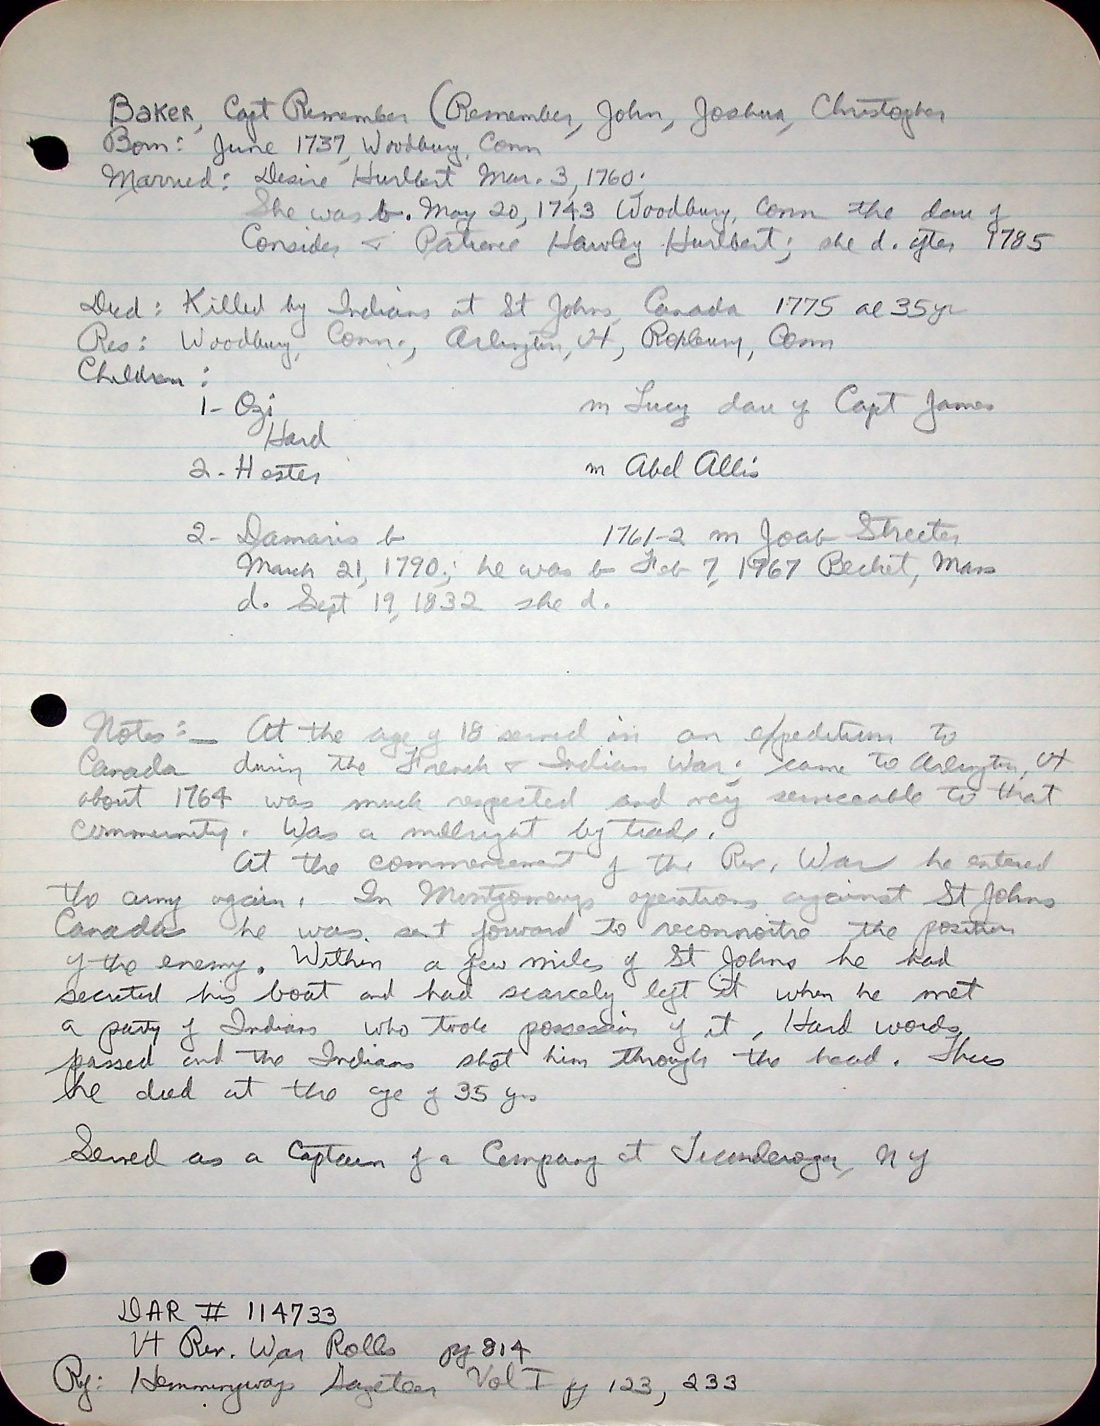 Baker, Capt Remember (Remember, John, Joshua, Christopher
Born: June 1737, Woodbury, Conn
Married: Desire Hurlbert Mar. 3, 1760;
She was b. May 20, 1743 Woodbury, Conn the dau of
Consider & Patience Hawley Hurlbert; she d. after 1785
Died: Killed by Indians at St Johns, Canada 1775 ae 35 yr
Res: Woodbury, Conn., Arlington, Vt, Roxbury, Conn
Children:
1- Ozi m Lucy dau of Capt James
Hard
2- Hester m Abel Allis
2- Damaris b 1761-2 m Joab Streeter
March 21, 1790; he was b Feb 7, 1967 Becket, Mass
d. Sept 19, 1832 she d.
Notes:- At the age of 18 served in an expedition to
Canada during the French & Indian War; came to Arlington, Vt
about 1764 was much respected and very serviceable to that
community. Was a millright by trade.
At the commencement of the Rev. War he entered
the army again. In Montgomerys operations against St Johns
Canada he was sent forward to reconnoitre the position
of the enemy. Within a few miles of St Johns he had
secreted his boat and had scarcely left it when he met
a party of Indians who took possession of it. Hard words
passed and the Indians shot him through the head. Thus
he died at the age of 35 yrs
Served as a Captain of a Company at Ticonderoga, NY
DAR # 114733
Vt Rev. War Rolls pg 814
Rf: Hemmingways Gazeteer Vol I pg 123, 233